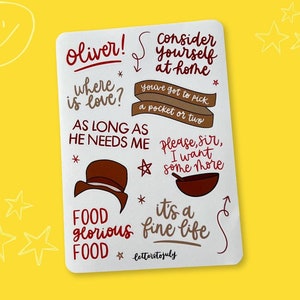 oliver!
consider
yourself
at home
where
is love?
you've got to pick
a pocket or two
AS LONG AS
HE NEEDS ME
please, sir,
I want
some more
FOOD
glorious
FOOD
it's a
fine life
letterstojuly